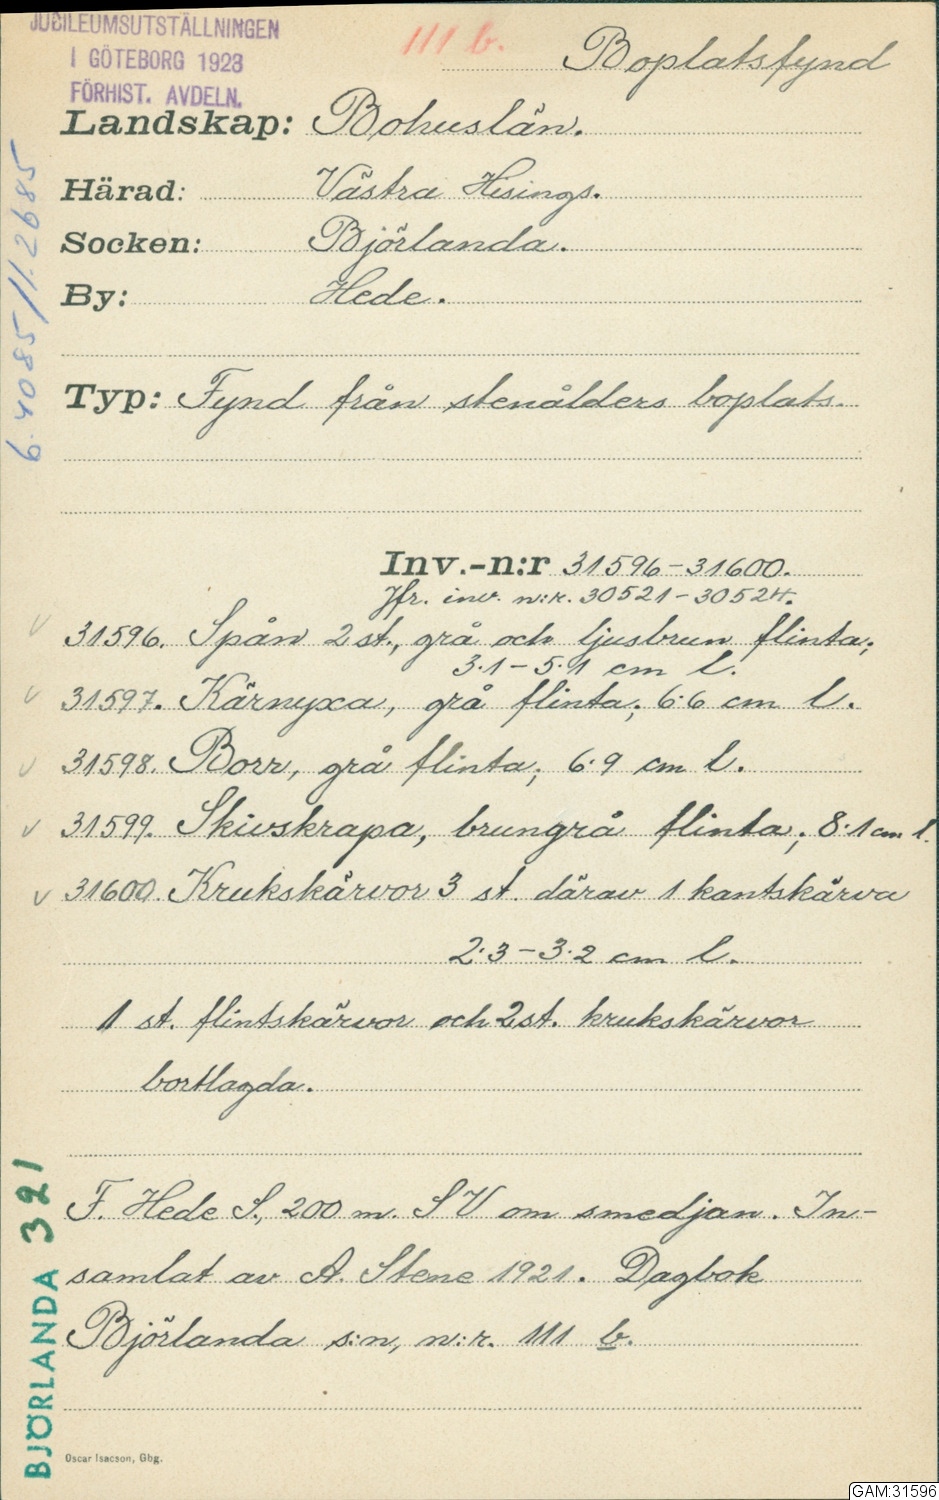 JUBILEUMSUTSTÄLLNINGEN
I GÖTEBORG 1923
FÖRHIST. AVDELN.
111 b.
Boplatsfynd
Landskap: Bohuslän.
Härad: Västra Hisings.
Socken: Björlanda.
By: Hede.
6.4085/1.2685
Typ: Fynd från stenålders boplats.
Inv.-n:r 31596-31600.
Jfr. inv. n:r. 30521-30524.
31596. Spån 2 st., grå och ljusbrun flinta;
3.1-5.1 cm l.
31597. Kärnyxa, grå flinta; 6.6 cm l.
31598. Borr, grå flinta; 6.9 cm l.
31599. Skivskrapa, brungrå flinta; 8.1 cm l.
31600. Krukskärvor 3 st. därav 1 kantskärva
2.3-3.2 cm l.
1 st. flintskärvor och 2 st. krukskärvor
bortlagda.
F. Hede S., 200 m. SV om smedjan. In-
samlat av A. Stene 1921. Dagbok
Björlanda s:n, n:r. 111 b.
BJÖRLANDA 321
Oscar Isacson, Gbg.
GAM:31596